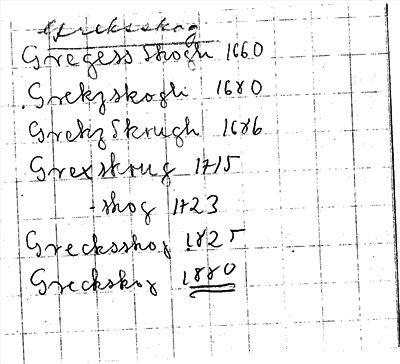 Grecksskog
Gregess Skogh 1660
Grekzskogh 1680
GrekzSkrugh 1686
Grexskrug 1715
-skog 1723
Grecksskog 1825
Greckskog 1880